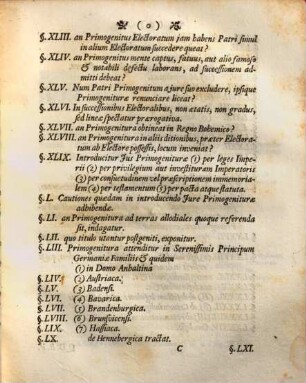 (o)
§.XLIII. an Primogenitus Electoratum jam habens Patri simul
in alium Electoratum succedere queat?
§.XLIV. an Primogenitus mente captus, fatuus, aut alio famoso
& notabili defectu laborans, ad successionem ad-
mitti debeat?
§.XLV. Num Patri Primogenitum a jure suo excludere, ipsique
Primogenitura renunciare liceat?
§.XLVI. In successionibus Electoralibus, non ætatis, non gradus,
sed lineæ spectatur prærogativa.
§.XLVII. an Primogenitura obtineat in Regno Bohemico?
§.XLVIII. an Primogenitura in aliis ditionibus, præter Electoratum
ab Electore possessis, locum inveniat?
§.XLIX. Introducitur Jus Primogenituræ (1) per leges Impe-
rii (2) per privilegium aut investituram Imperatoris
(3) per consuetudinem vel præscriptionem immemoria-
lem (4) per testamentum (5) per pacta atque statuta.
§. L. Cautiones quædam in introducendo Jure Primogenituræ
adhibendæ.
§. LI. an Primogenitura ad terras allodiales quoque referenda
sit, indagatur.
§. LII. quo titulo utantur postgeniti, exponitur.
§. LIII. Primogenitura attenditur in Serenissimis Principum
Germaniæ Familiis & quidem
(1) in Domo Anhaltina
§. LIV. (2) Austriaca.
§. LV. (3) Badensi.
§. LVI. (4) Bavarica.
§. LVII. (5) Brandenburgica.
§. LVIII. (6) Brunsvicensi.
§. LIX. (7) Hassiaca.
§. LX. de Hennebergica tractat.
C §. LXI.